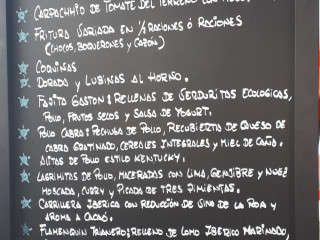 CARPACCHIO DE TOMATE DEL TERRENO CON
FRITURA VARIADA EN ½ RACIONES Ó RACIONES
(CHOCOS, BOQUERONES Y CAZÓN)
COQUINAS
DORADA Y LUBINAS AL HORNO.
PAVITO GASTON: RELLENAS DE VERDURITAS ECOLOGICAS,
POLLO, FRUTOS SECOS Y SALSA DE YOGURT.
POLLO CABRA: PECHUGA DE POLLO, RECUBIERTO DE QUESO DE
CABRA GRATINADO, CEREALES INTEGRALES Y MIEL DE CAÑA.
ALITAS DE POLLO ESTILO KENTUCKY.
LAGRIMITAS DE POLLO, MACERADOS CON LIMA, GENJIBRE Y NUEZ
MOSCADA, CURRY Y PICADA DE TRES PIMIENTAS.
CARRILLERA IBERICA CON REDUCCIÓN DE VINO DE LA
AROMA A CACAO.
FLAMENQUIN TRIANERO: RELLENO DE LOMO IBERICO MARINADO,